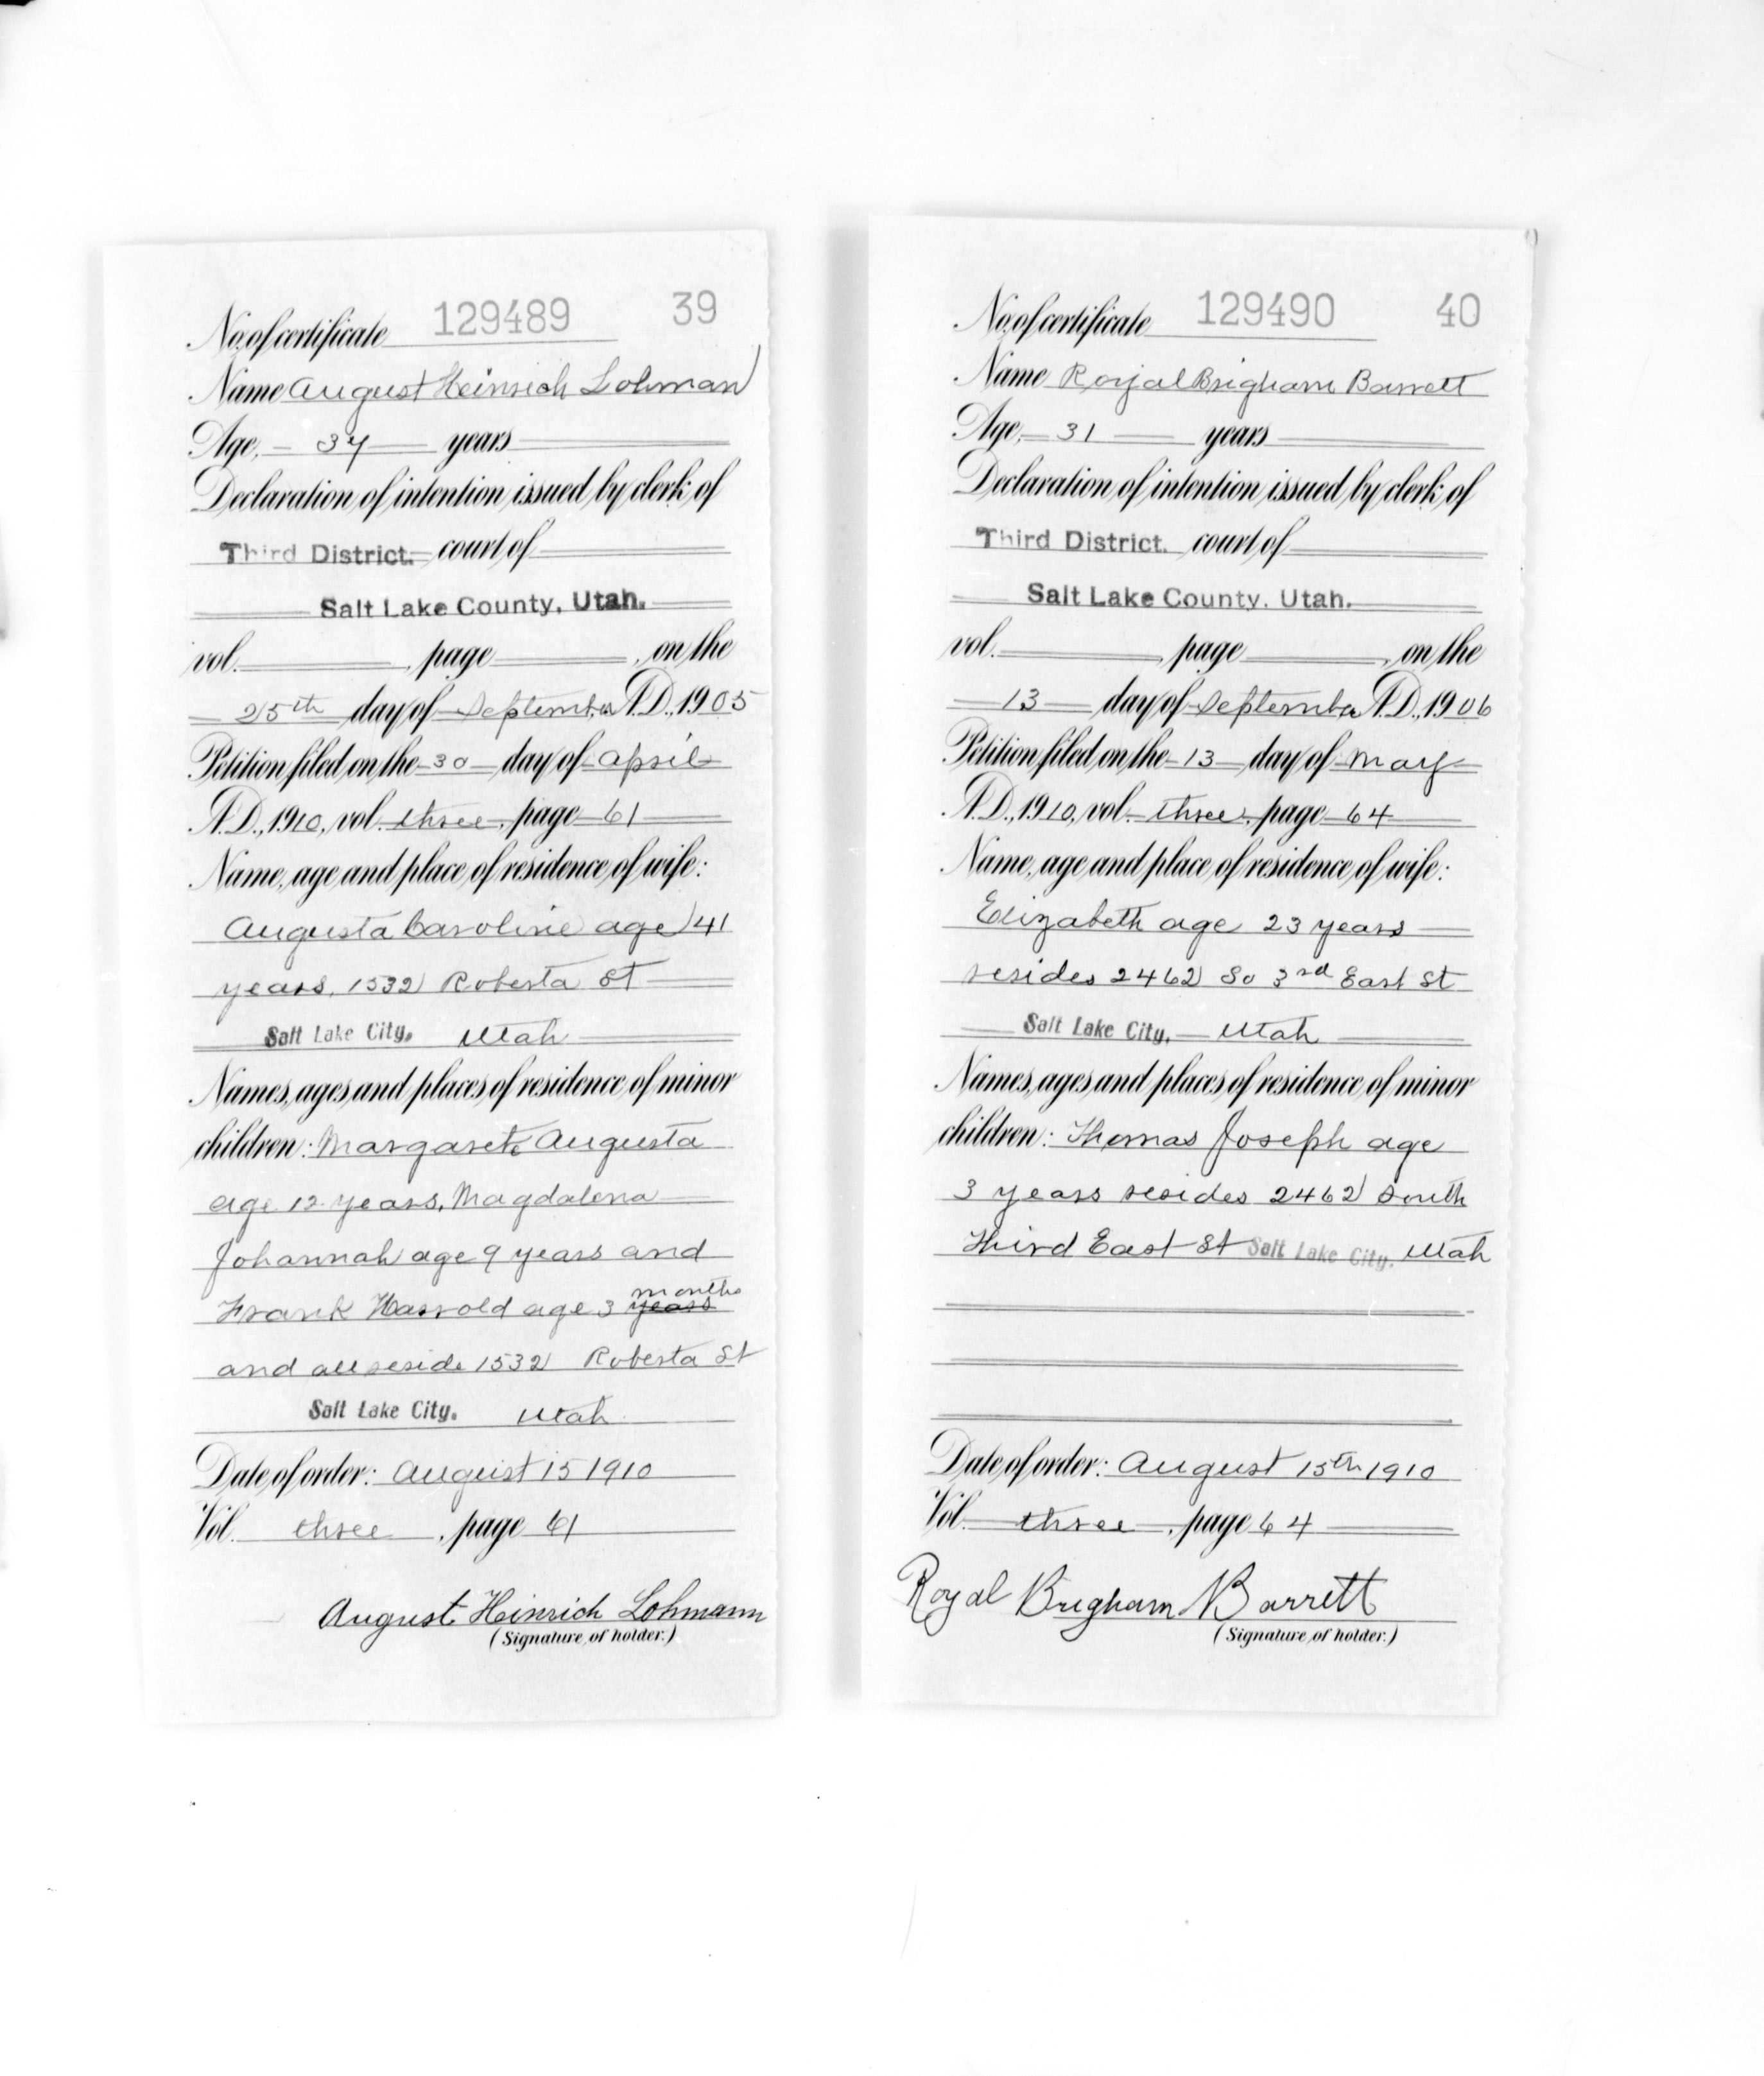 No. of certificate 129489 39
Name August Heinrich Lohman
Age, 37 years
Declaration of intention issued by clerk of
Third District. court of
Salt Lake County, Utah.
vol. , page , on the
25th day of September A.D., 1905
Petition filed on the 30 day of April
A.D., 1910, vol. three, page 61
Name, age and place of residence of wife:
Augusta Caroline age 41
years, 1532 Roberta St
Salt Lake City, Utah
Names, ages and places of residence of minor
children: Margarete Augusta
age 12 years, Magdalena
Johannah age 9 years and
Frank Harrold age 3 years months
and all reside 1532 Roberta St
Salt Lake City. Utah
Date of order: August 15 1910
Vol. three, page 61
August Heinrich Lohmann
(Signature of holder.)
No. of certificate 129490 40
Name Royal Brigham Barrett
Age, 31 years
Declaration of intention issued by clerk of
Third District. court of
Salt Lake County. Utah.
vol. , page , on the
13 day of September A.D., 1906
Petition filed on the 13 day of May
A.D., 1910, vol. three, page 64
Name, age and place of residence of wife:
Elizabeth age 23 years
resides 2462 So 3rd East St
Salt Lake City, Utah
Names, ages and places of residence of minor
children: Thomas Joseph age
3 years resides 2462 South
Third East St Salt Lake City. Utah
Date of order: August 15th 1910
Vol. three, page 64
Royal Brigham Barrett
(Signature of holder.)